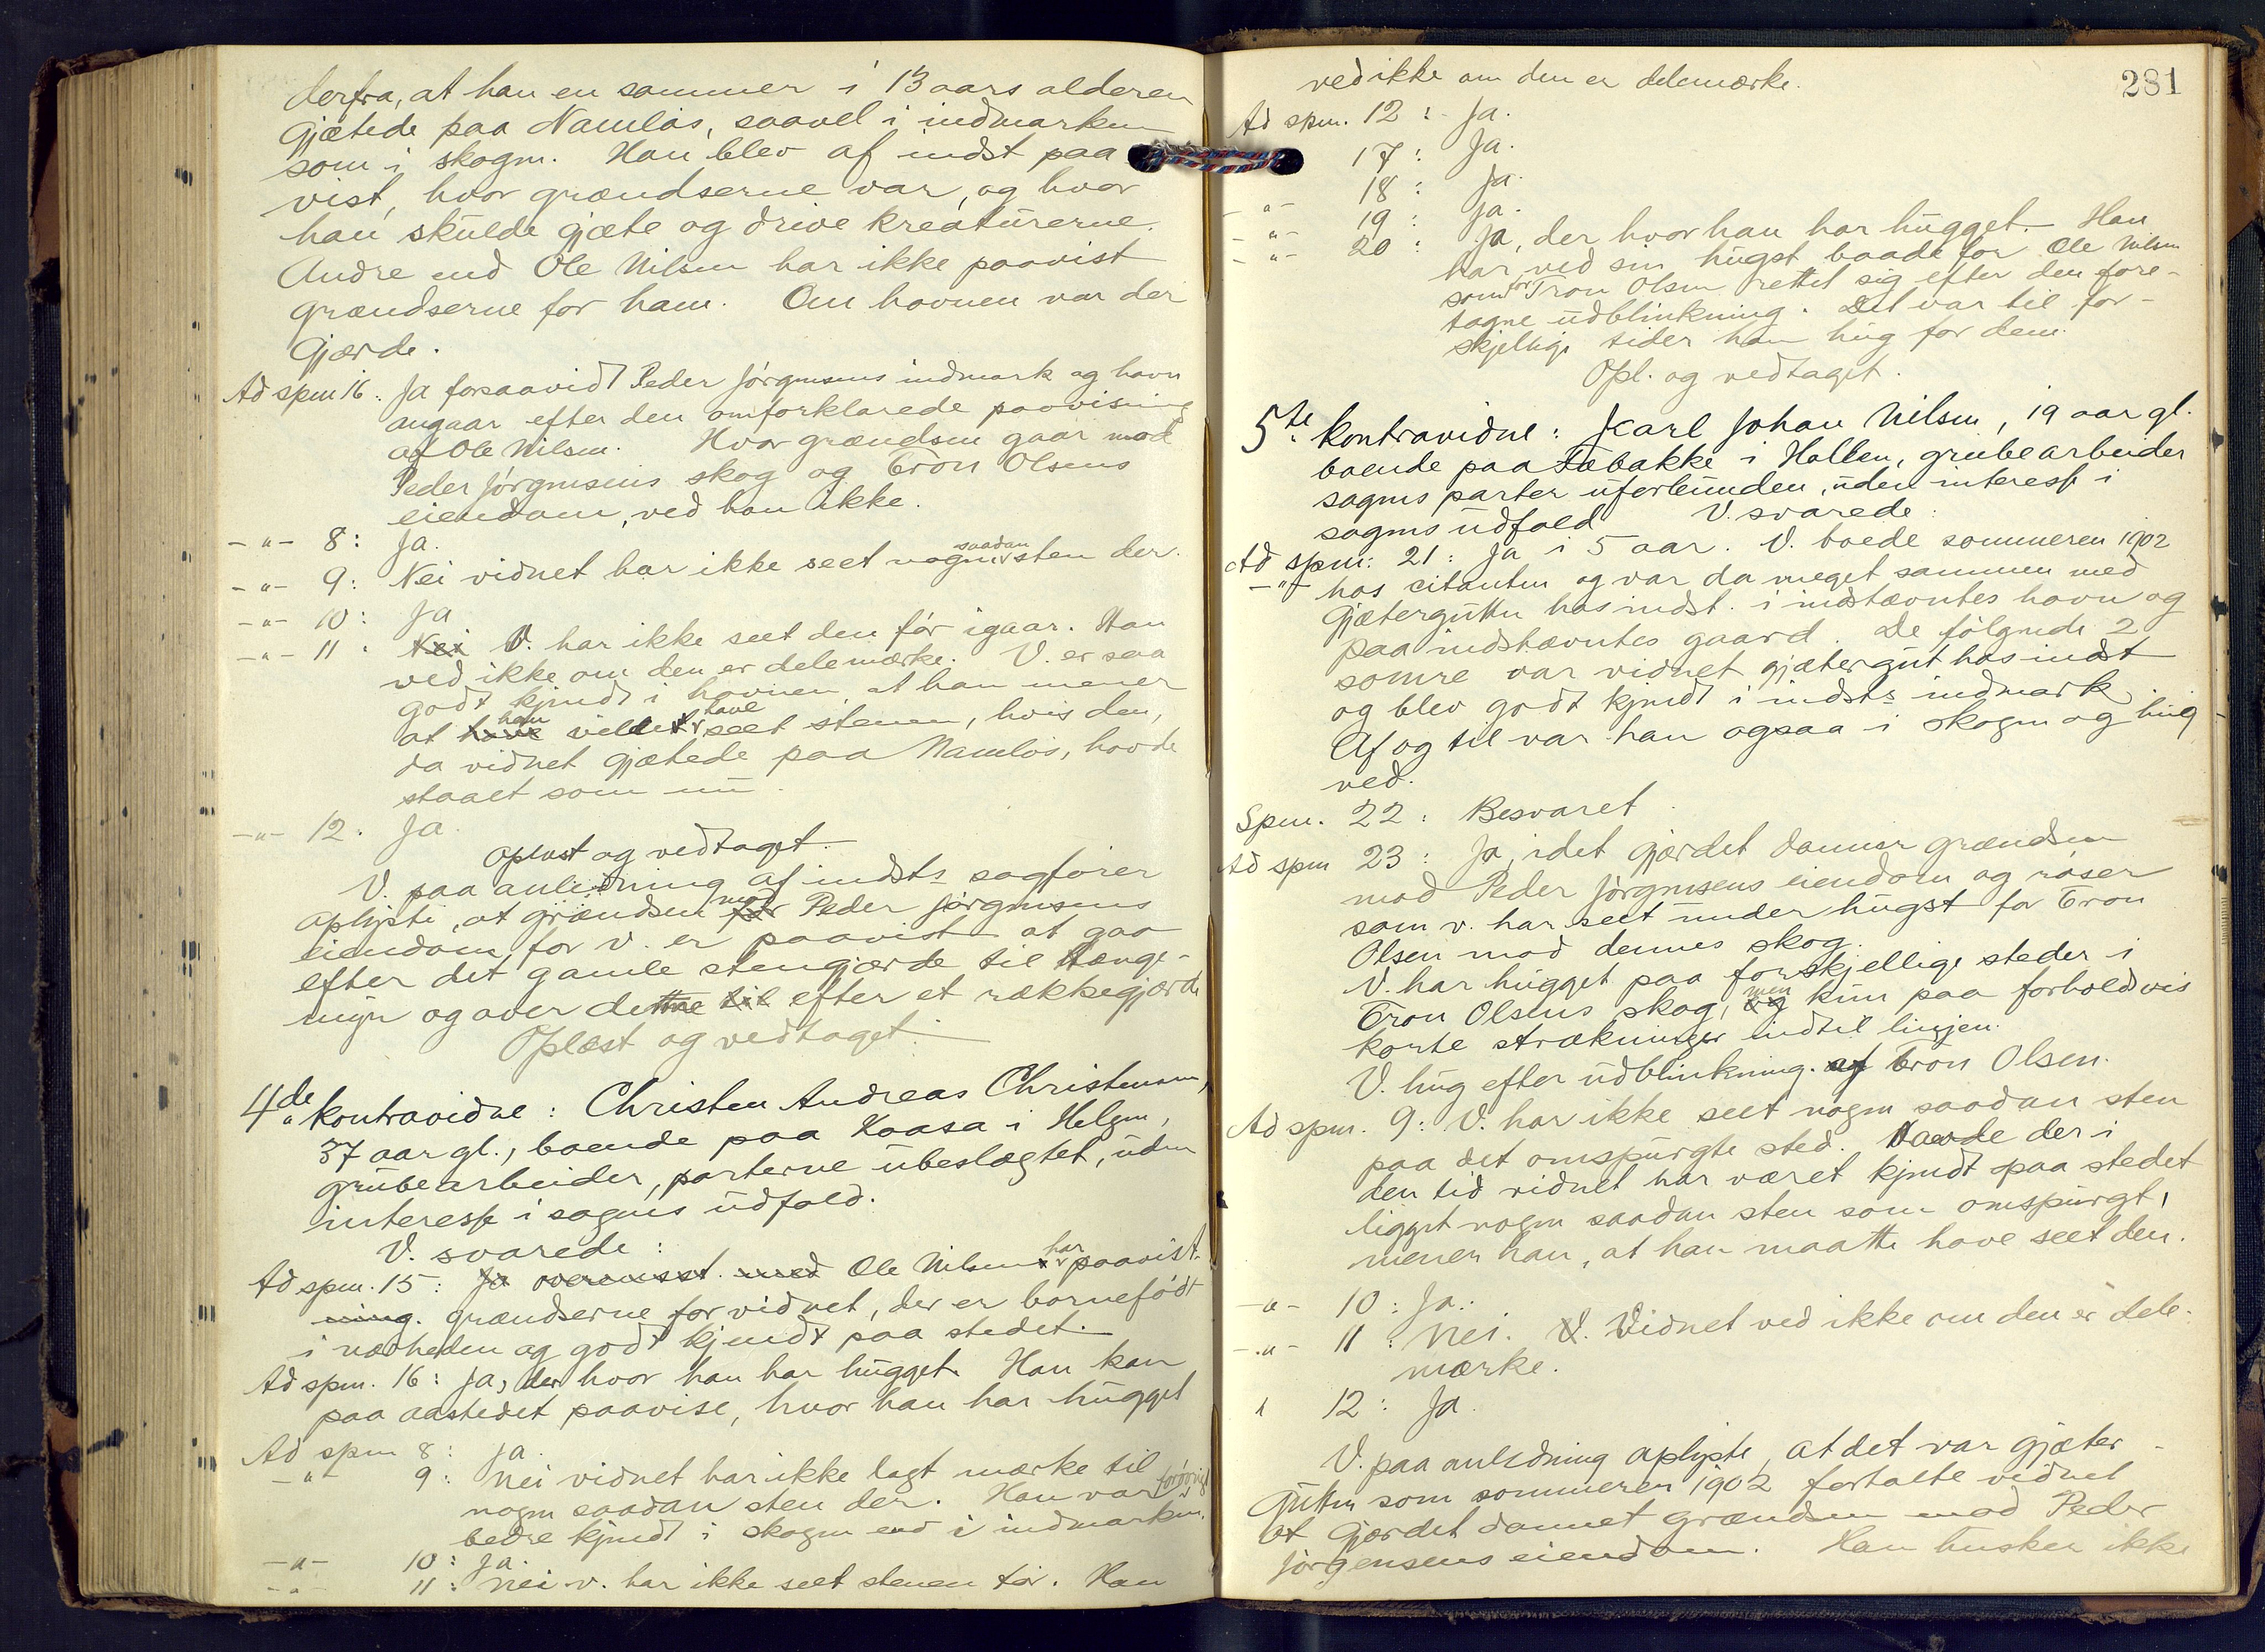 derfra, at han en sommer i 13 aars alderen
gjætede paa Namløs, saavel i indmarken
som i skogen. Han blev af indst paa
vist, hvor grændserne var, og hvor
han skulde gjæte og drive kreaturerne.
Andre end Ole Nilsen har ikke paavist
grændserne for ham. Om havnen var der
gjærde.
Ad spm 16: Ja forsaavidt Peder Jörgensens indmark og havn
angaar efter den omforklarede paavisning
af Ole Nilsen. Hvor grændsen gaar mod
Peder Jörgensens skog og Tron Olsens
eiendom, ved han ikke.
-"- 8: Ja.
-"- 9: Nei vidnet har ikke seet nogen saadan sten der.
-"- 10: Ja
-"- 11: Nei V. har ikke seet den før igaar. Han
ved ikke om den er delemærke. V. er saa
godt kjendt i havnen, at han mener
at have han villet have seet stenen, hvis den,
da vidnet gjætede paa Namløs, havde
staaet som nu.
-"- 12. Ja.
Oplæst og vedtaget.
V. paa anledning af indsts sagfører
oplyste, at grændsen for mod Peder Jörgensens
eiendom for v. er paavist at gaa
efter det gamle stengjærde til Hænge-
myr og over denne til efter et rækkegjærde
Oplæst og vedtaget.
4de kontravidne: Christen Andreas Christensen,
37 aar gl., boende paa Kaasa i Helgen,
grubearbeider, parterne ubeslægtet, uden
interesse i sagens udfald.
V. svarede:
Ad spm. 15: Ja overensst. med Ole Nilsens har paavist.
ning. grændserne for vidnet, der er barnefødt
i nærheden og godt kjendt paa stedet.
Ad spm. 16: Ja, der hvor han har hugget. Han kan
paa aastedet paavise, hvor han har hugget
Ad spm 8: Ja.
-"- 9: Nei vidnet har ikke lagt mærke til
nogen saadan sten der. Han var forøvrigt
bedre kjendt i skogen end i indmarken.
-"- 10: Ja.
-"- 11: Nei v. har ikke seet stenen før. Han
281
ved ikke om den er delemærke.
Ad spm. 12: Ja.
17: Ja.
-"- 18: Ja.
-"- 19: Ja.
-"- 20: Ja, der hvor han har hugget. Han
har ved sin hugst baade for Ole Nilsen
som for Tron Olsen rettet sig efter den fore-
tagne udblinkning. Det var til for-
skjellige tider han hug for dem.
Opl. og vedtaget.
5te kontravidne: Karl Johan Nilsen, 19 aar gl.
boende paa Tæbakke i Hollen, grubearbeider
sagens parter uforbunden, uden interesse i
sagens udfald. V. svarede:
Ad spm: 21: Ja i 5 aar. V. boede sommeren 1902
-"- hos citanten og var da meget sammen med
gjætergutten hos indst. i indstævntes havn og
paa indstævntes gaard. De følgende 2
somre var vidnet gjætergut hos indst
og blev godt kjendt i indsts indmark.
Af og til var han ogsaa i skogen og hug
ved.
Spm. 22: Besvaret.
Ad spm 23: Ja, idet gjærdet danner grændsen
mod Peder Jörgensens eiendom og røser
som v. har seet under hugst for Tron
Olsen mod dennes skog.
V. har hugget paa forskjellige steder i
Tron Olsens skog, og men kun paa forholdvis
korte strækninger indtil linjen.
V. hug efter udblinkning. af Tron Olsen.
Ad spm. 9: V. har ikke seet nogen saadan sten
paa det omspurgte sted. Havde der i
den tid vidnet har været kjendt paa stedet
ligget nogen saadan sten som omspurgt,
mener han, at han maatte have seet den.
-"- 10: Ja.
-"- 11: Nei. V. Vidnet ved ikke om den er dele-
mærke.
" 12: Ja.
V. paa anledning oplyste, at det var gjæter-
gutten som sommeren 1902 fortalte vidnet
at gjærdet dannet grændsen mod Peder
Jørgensens eiendom. Han husker ikke